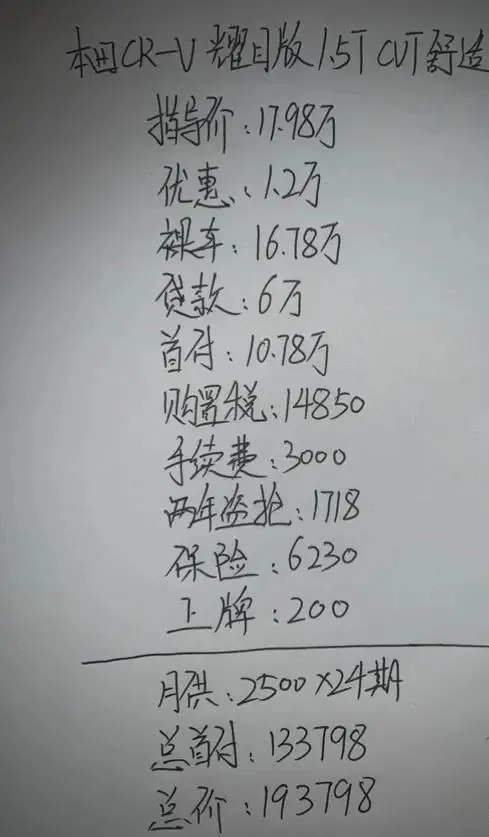 本田CR-V 耀目版 1.5T CVT 舒适
指导价:17.98万
优惠:1.2万
裸车:16.78万
贷款:6万
首付:10.78万
购置税:14850
手续费:3000
两年盗抢:1718
保险:6230
上牌:200
月供:2500×24期
总首付:133798
总价:193798